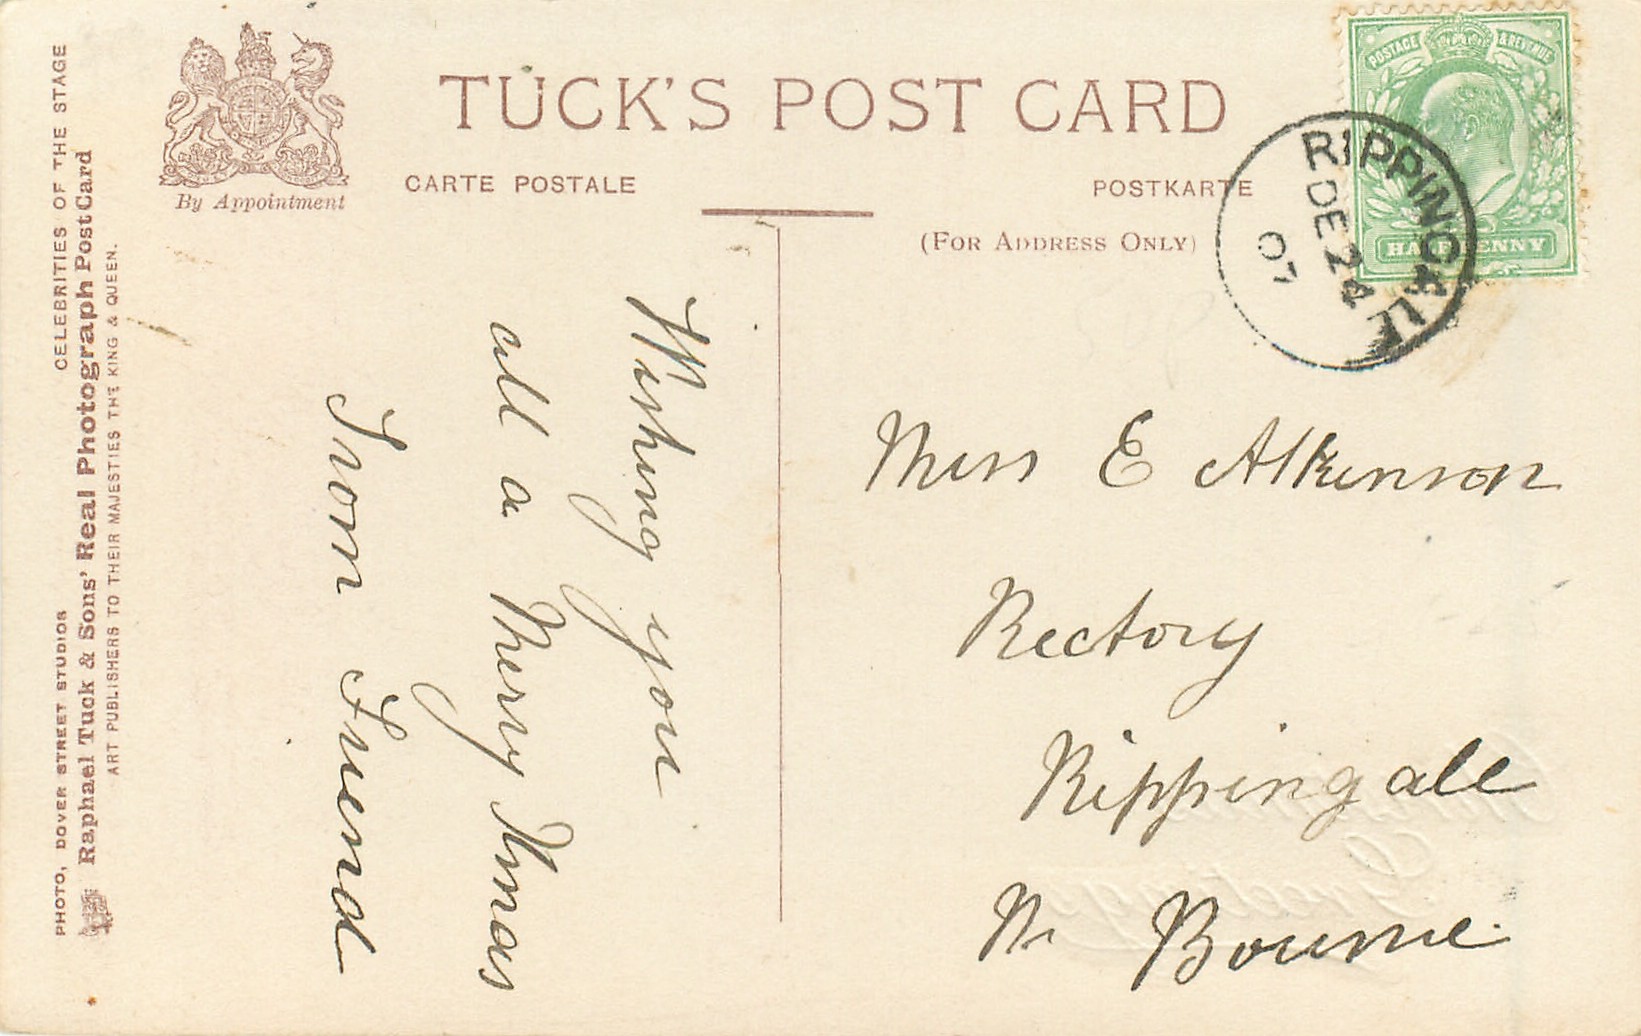 TUCK'S POST CARD
CARTE POSTALE
POSTKARTE
(FOR ADDRESS ONLY)
By Appointment
PHOTO, DOVER STREET STUDIOS
CELEBRITIES OF THE STAGE
Raphael Tuck & Sons' Real Photograph Post Card
ART PUBLISHERS TO THEIR MAJESTIES THE KING & QUEEN.
Wishing you
all a Merry Xmas
From Friend
POSTAGE & REVENUE
HALFPENNY
RIPPINGALE
DE 24
07
Miss E Atkinson
Rectory
Rippingale
Nr Bourne
Greetings